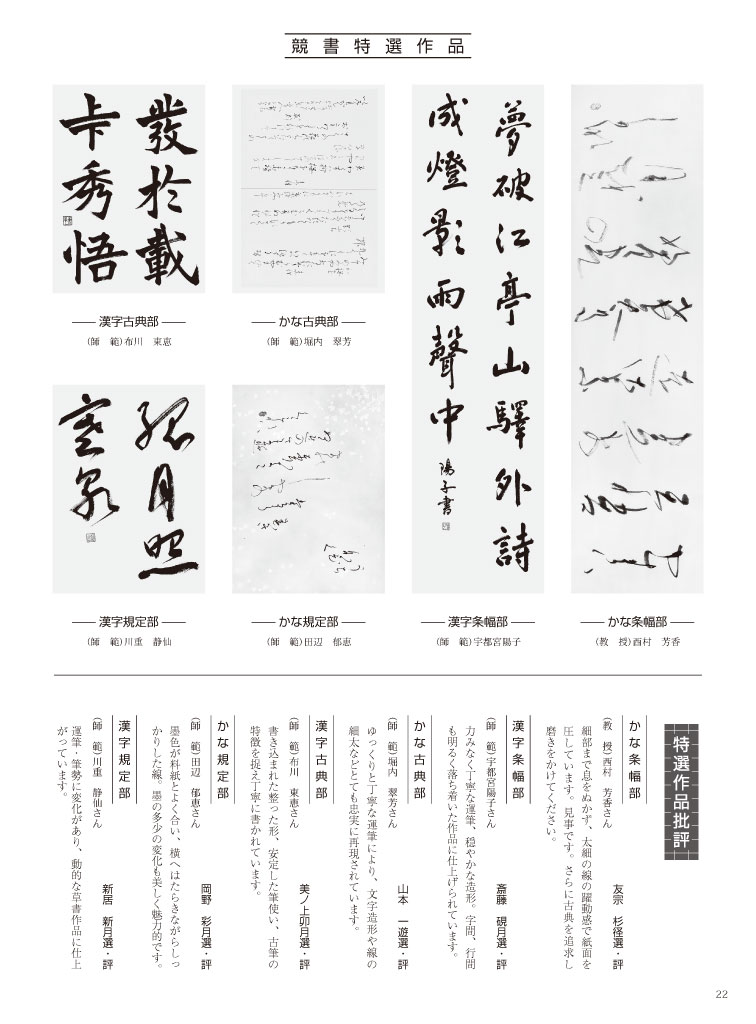 競書特選作品
發於載
卡秀悟
漢字古典部
(師　範)布川　東恵
かな古典部
(師　範)堀内　翠芳
夢破江亭山驛外詩
成燈影雨聲中
陽子書
漢字条幅部
(師　範)宇都宮陽子
かな条幅部
(教　授)西村　芳香
月照
寒泉
漢字規定部
(師　範)川重　静仙
かな規定部
(師　範)田辺　郁恵
特選作品批評
かな条幅部
(教　授)西村　芳香さん
友宗　杉径選・評
細部まで息をぬかず、太細の線の躍動感で紙面を
圧しています。見事です。さらに古典を追求し
磨きをかけてください。
漢字条幅部
(師　範)宇都宮陽子さん
斎藤　硯月選・評
力みなく丁寧な運筆、穏やかな造形。字間、行間
も明るく落ち着いた作品に仕上げられています。
かな古典部
(師　範)堀内　翠芳さん
山本　一遊選・評
ゆっくりと丁寧な運筆により、文字造形や線の
細太などとても忠実に再現されています。
漢字古典部
(師　範)布川　東恵さん
美ノ上卯月選・評
書き込まれた整った形、安定した筆使い、古筆の
特徴を捉え丁寧に書かれています。
かな規定部
(師　範)田辺　郁恵さん
岡野　彩月選・評
墨色が料紙とよく合い、横へはたらきながらしっ
かりした線。墨の多少の変化も美しく魅力的です。
漢字規定部
(師　範)川重　静仙さん
新居　新月選・評
運筆・筆勢に変化があり、動的な草書作品に仕上
がっています。
22